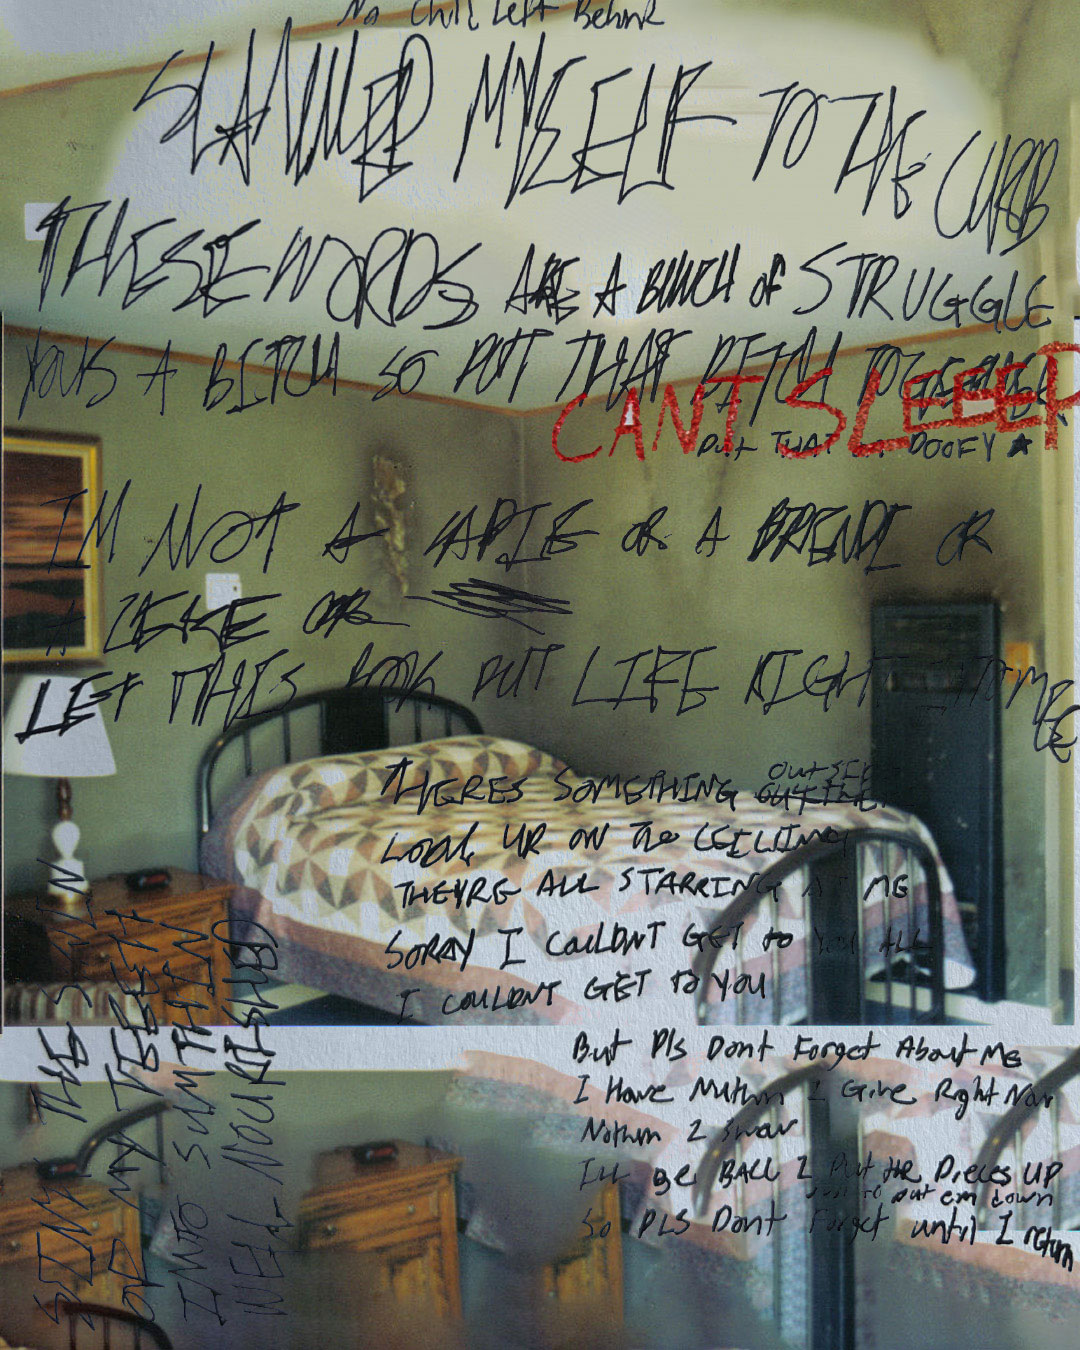 No Child Left Behind
SLAMMED MYSELF TO THE CURB
THESE WORDS ARE A BUNCH OF STRUGGLE
YOUS A BITCH SO PUT THAT BITCH TOGETHER
CANT SLEEEP
PUT THAT DOOFY
IM NOT A OR A OR
A OR
LET THIS PUT LIFE RIGHT ME
THERES SOMETHING OUTSIDE
LOOK UP ON THE CEILING
THEYRE ALL STARRING AT ME
SORRY I COULDNT GET to YOU ALL
I COULDNT GET TO YOU
But Pls Dont Forget About Me
I Have Nuthin 2 Give Right Now
Nothin 2 Swear
Ill Be BACC 2 Put the Pieces UP
just to put em down
So PLS Dont Forget until I return
SINK THE SKIN
OF MY TEETH
INTO SUMTHIN
WELL NOURISHED